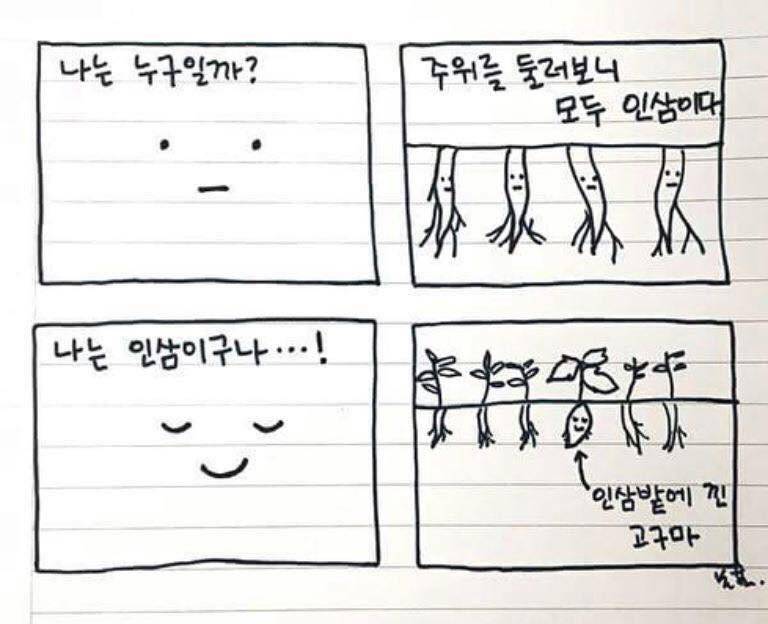 나는 누구일까?
주위를 둘러보니
모두 인삼이다
나는 인삼이구나...!
인삼밭에 낀
고구마